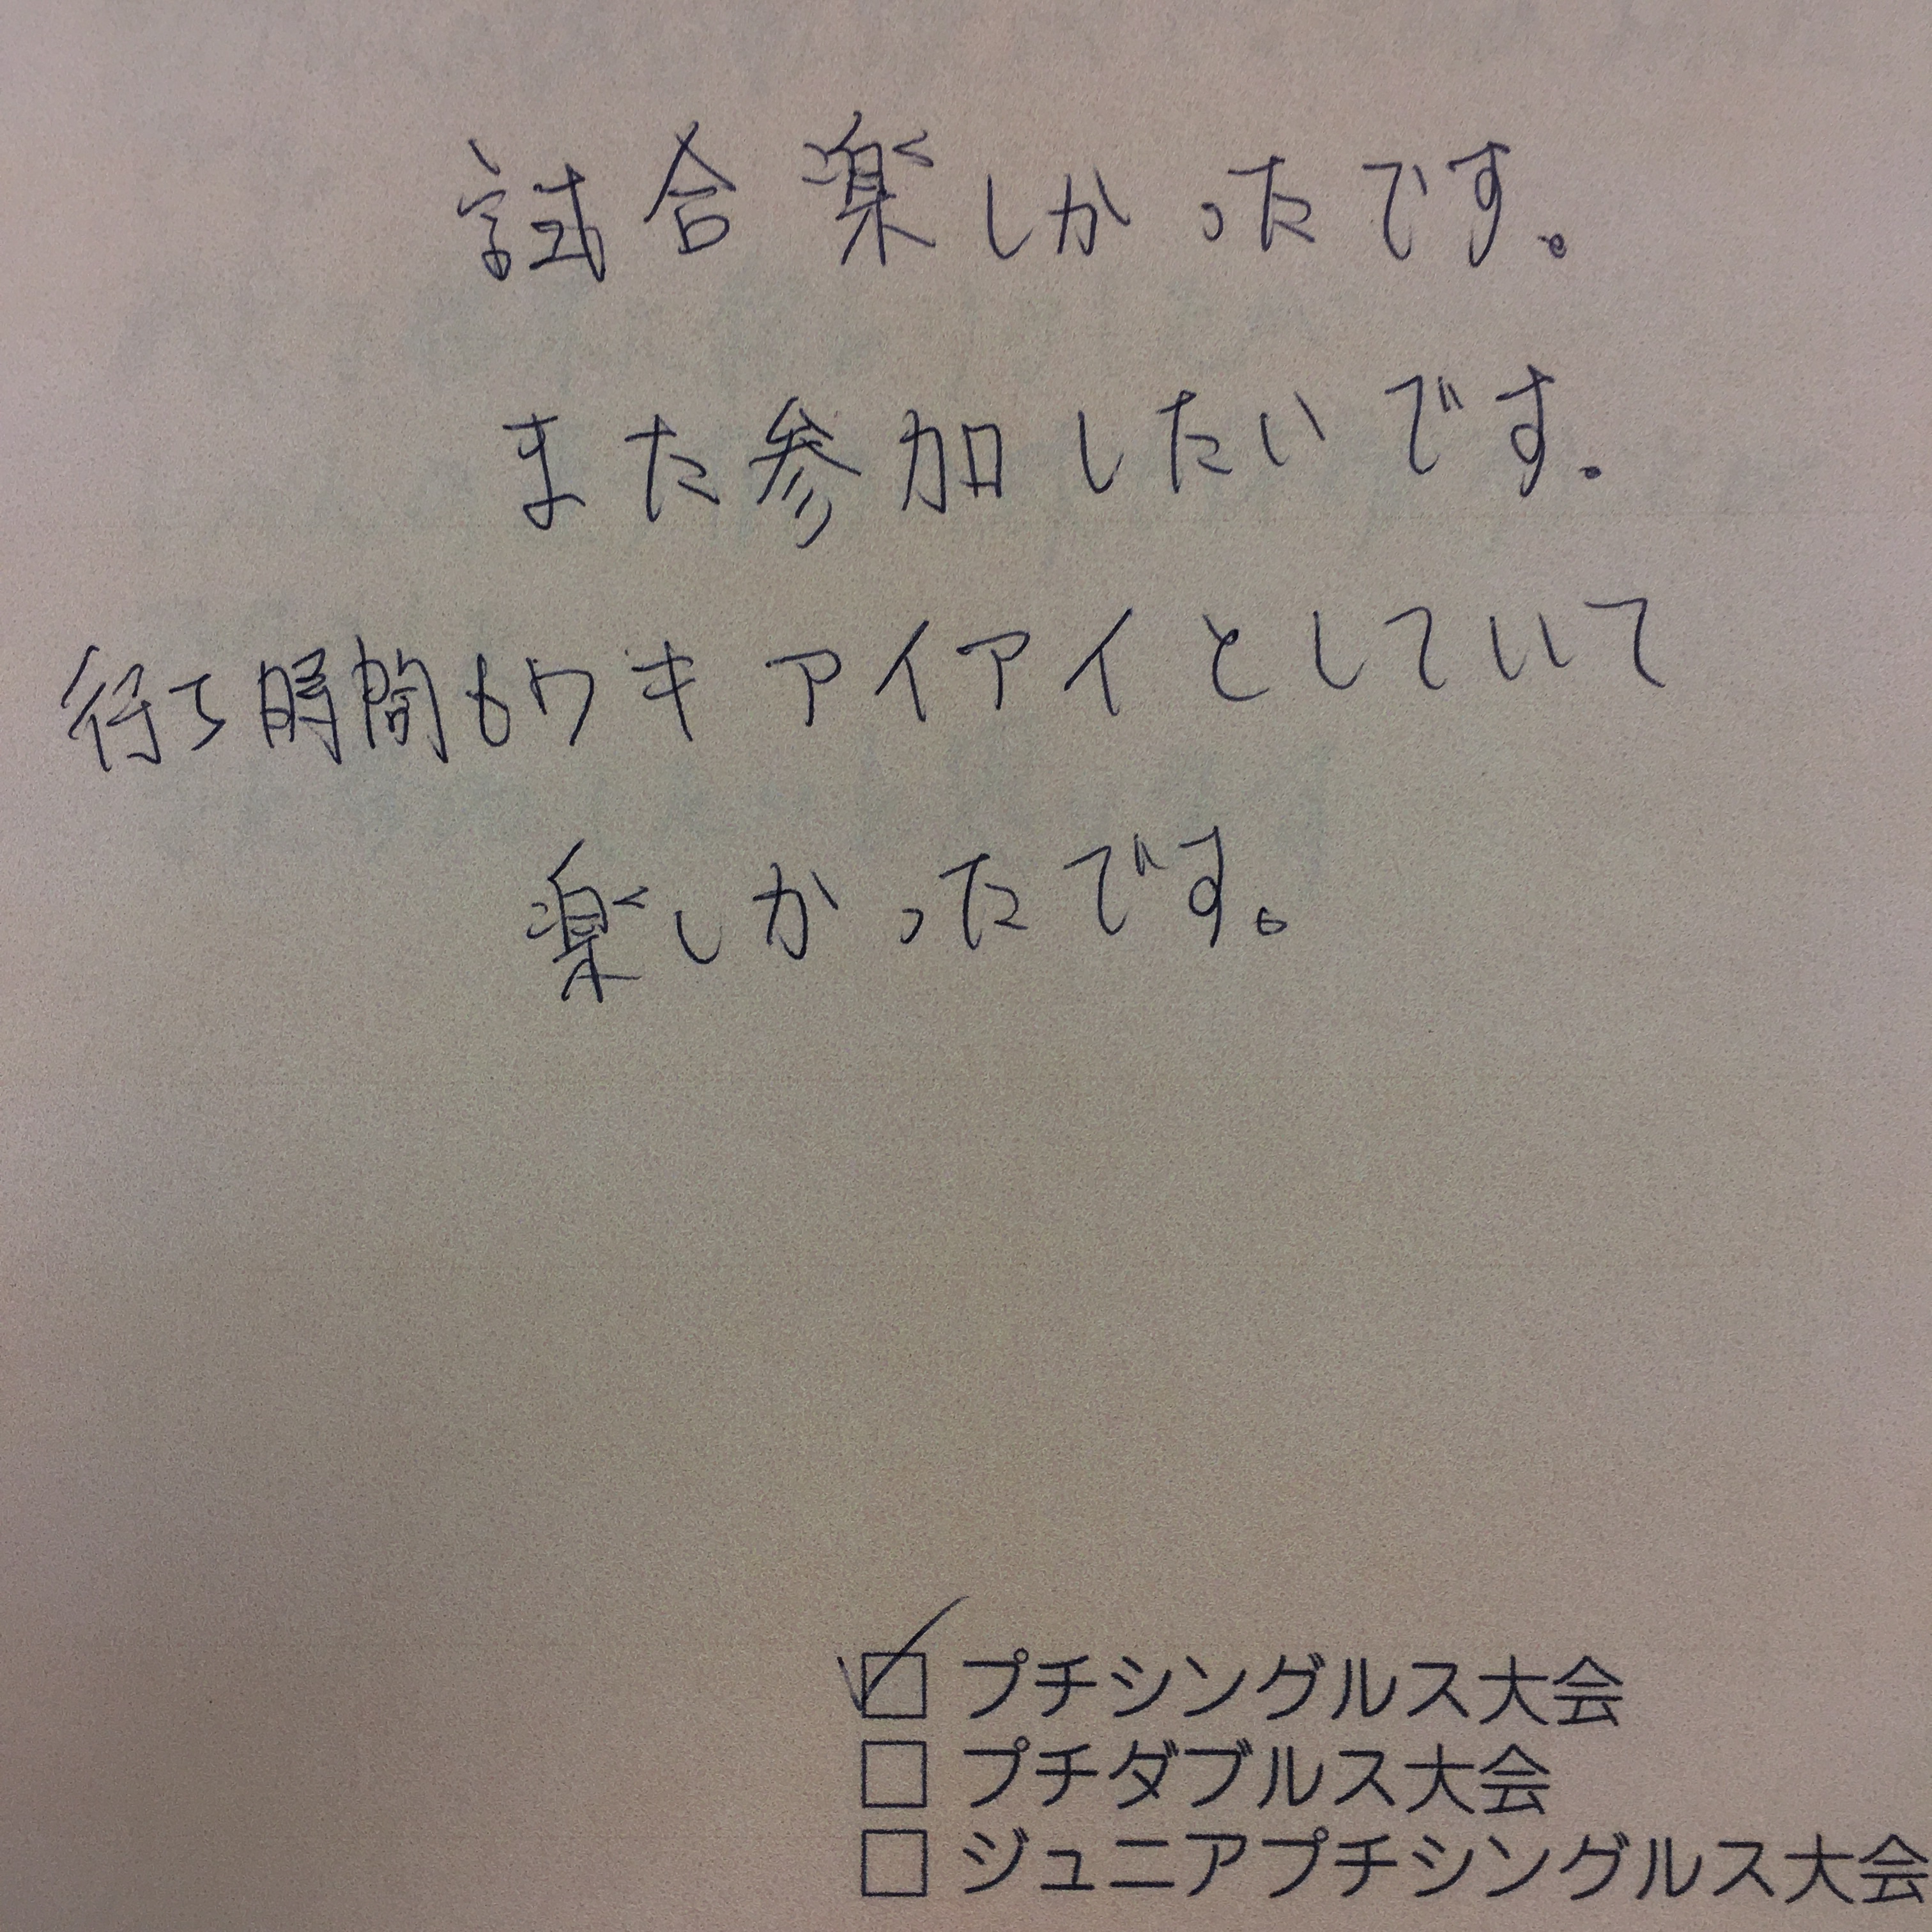 試合楽しかったです。
また参加したいです。
待ち時間もワキアイアイとしていて
楽しかったです。
☑ プチシングルス大会
☐ プチダブルス大会
☐ ジュニアプチシングルス大会